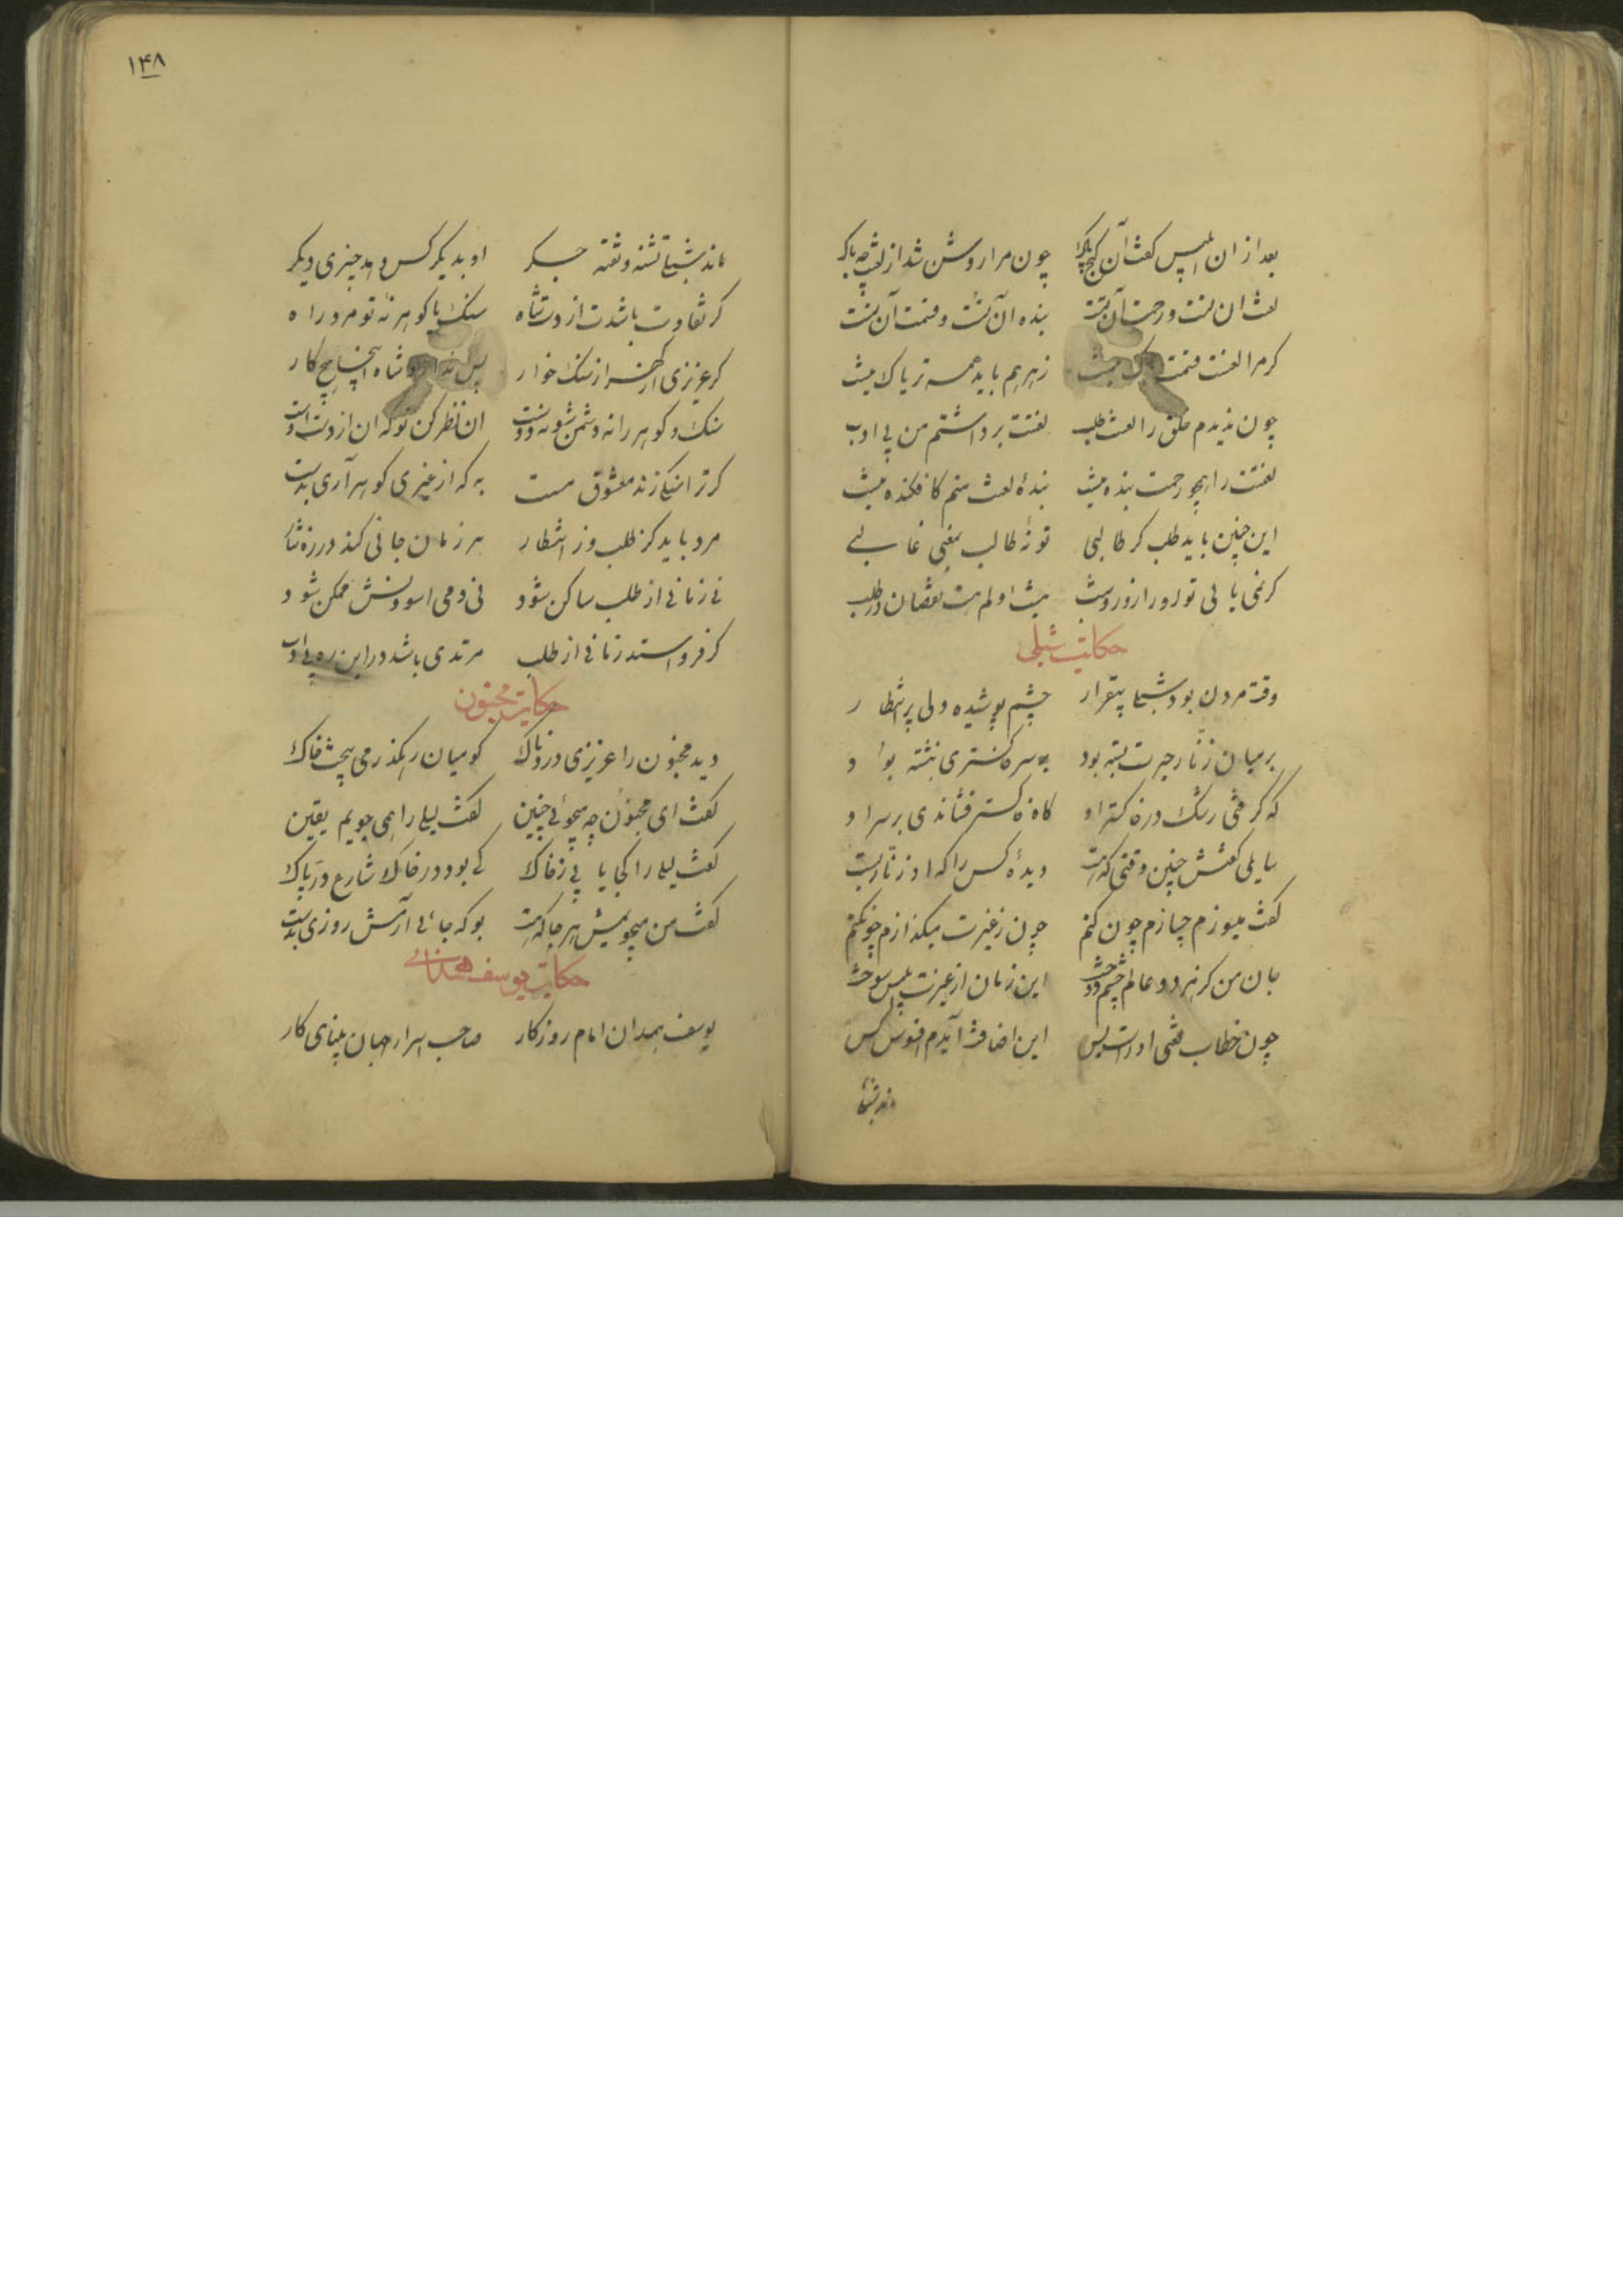 بعد ازان ابلیس گفت آن گنج پاک چون مرا روشن شد از لعنت چه باک
لعنت آن تست و رحمت آن تست بنده آن تست و قسمت آن تست
کر مرا لعنت قسمت باک نیست زهر هم باید همه تریاک نیست
چون بدیدم خلق را لعنت طلب لعنت برداشتم من بی ادب
لعنتت را همچو رحمت بنده نیست بندهٔ لعنت منم کافکنده نیست
این چنین باید طلب کر طالبی تو نهٔ طالب بمعنی غالبی
کر نمی یابی تو او را روز و شب نیست او کم هست نقصان در طلب
حکایت شبلی
وقت مردن بود شبلی بیقرار چشم پوشیده دلی پر انتظار
بر میان زنّار حیرت بسته بود بر سر خاکستری بنشسته بود
که کرفتی اشک در خاکستر او کاه خاکستر فشاندی بر سر او
سایلی گفتش چنین وقتی که هست دیدهٔ کس را که او زنّار بست
گفت میسوزم چسازم چون کنم چون ز غیرت میکدازم چون کنم
جان من کز هر دو عالم چشم دوخت این زمان از غیرت ابلیس سوخت
چون خطاب لعنتی او راست بس این اضافت آیدم افسوس کس
ماند شبلی
۱۴۸
ماند شبلی تشنه و تفته جگر او بدیگر کس دهد چیزی دیگر
کر تفاوت باشدت از دست شاه سنک با کوهر نهٔ تو مرد راه
کر عزیزی از گهر از سنک خوار پس ندارد شاه اینجا هیچ کار
سنک و کوهر را نه دشمن شو نه دوست آن نظر کن تو که آن از دست اوست
کر ترا سنکی زند معشوق مست به که از غیری کوهر آری بدست
مرد باید کز طلب وز انتظار هر زمان جانی کند در ره نثار
نی زمانی از طلب ساکن شود نی دمی آسودنش ممکن شود
کر فرو استد زمانی از طلب مرتدی باشد در این ره بی ادب
حکایت مجنون
دید مجنون را عزیزی دردناک کو میان رهگذر می بیخت خاک
گفت ای مجنون چه میجوئی چنین گفت لیلی را همی جویم یقین
گفت لیلی را کجا یابی ز خاک کی بود در خاک شارع درّ پاک
گفت من میجویمش هر جا که هست بوکه جائی آرمش روزی بدست
حکایت یوسف همدانی
یوسف همدان امام روزکار صاحب اسرار جهان بینای کار